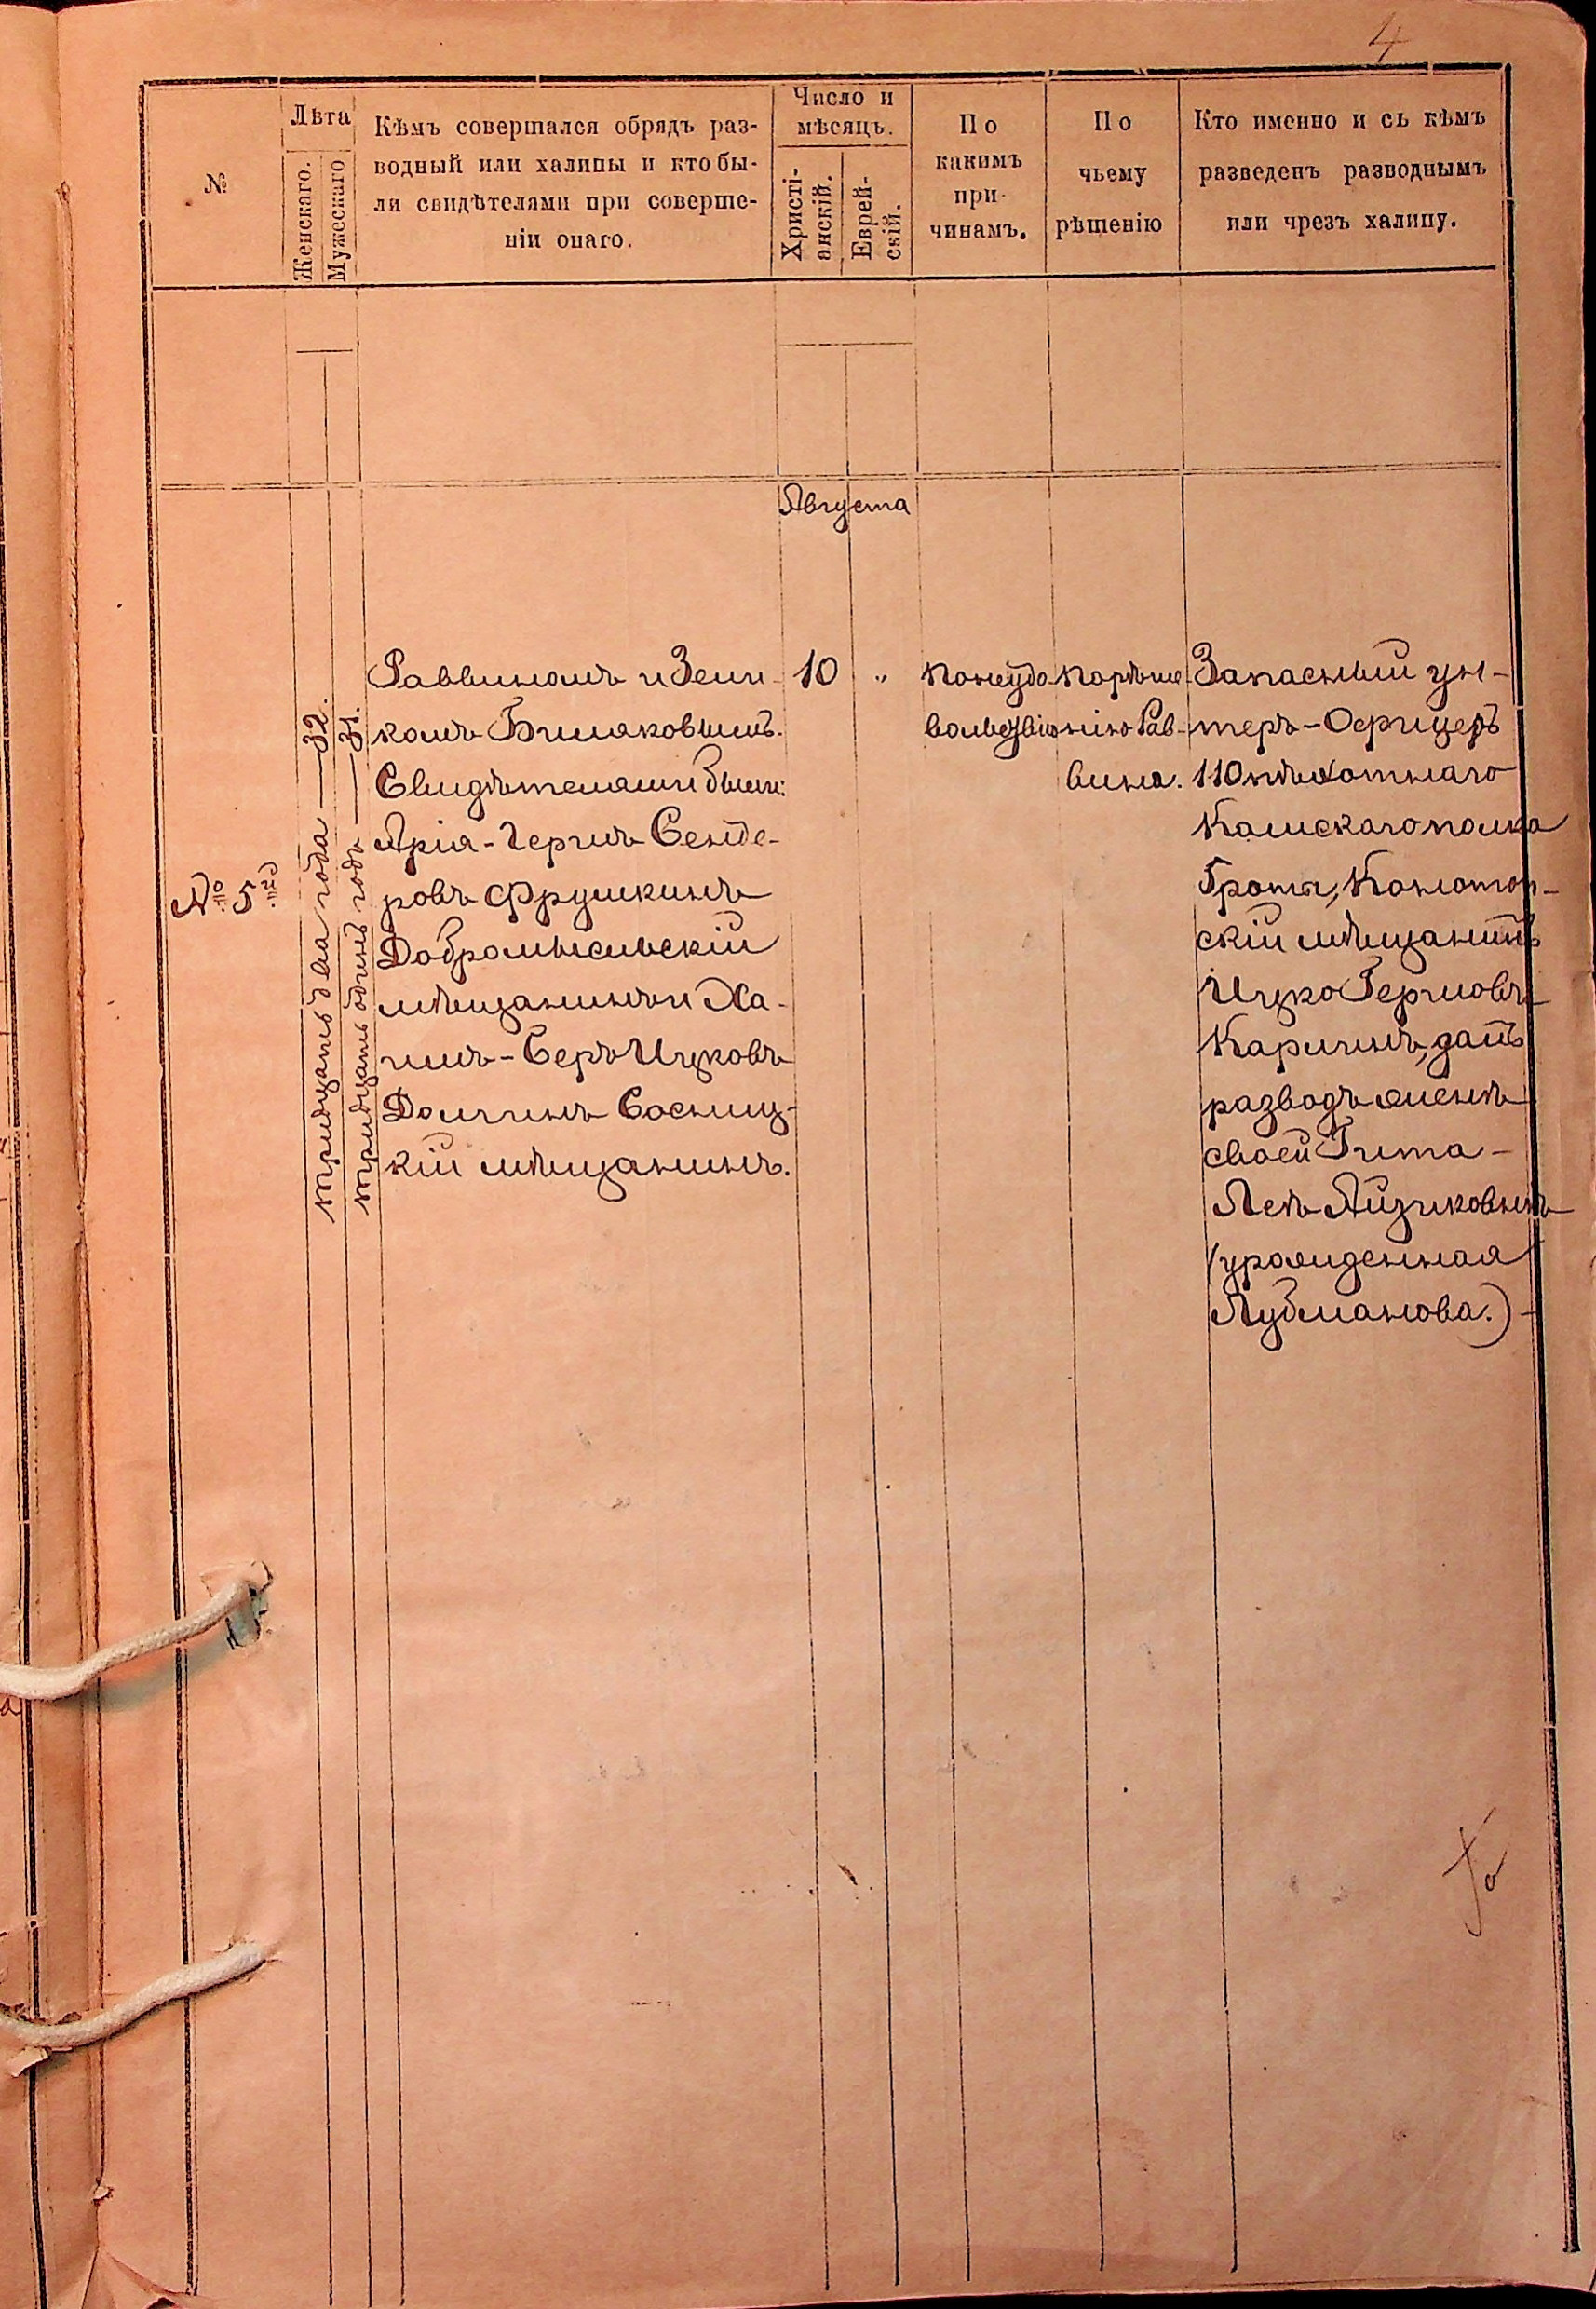 4
№
Лѣта
Женскаго.
Мужескаго
Кѣмъ совершался обрядъ раз-
водный или халицы и кто бы-
ли свидѣтелями при соверше-
ніи онаго.
Число и
мѣсяцъ.
Христі-
анскій.
Еврей-
скій.
По
какимъ
при-
чинамъ.
По
чьему
рѣшенію
Кто именно и съ кѣмъ
разведенъ разводнымъ
или чрезъ халицу.
Августа
№ 5й
тридцать два года — 32.
тридцать одинъ годъ — 31.
Раввиномъ и Зели-
комъ
Свидѣтелями были:
Арія-Гершъ Сенде-
ровъ Фрумкинъ
Добромысльскій
мѣщанинъ и Ха-
имъ-Беръ Ицковъ
Долгинъ Сосниц-
кій мѣщанинъ.
10
"
по неудо
вольствію
по рѣше
нію Рав-
вина.
Запасный ун-
теръ-Офицеръ
110 пѣхотнаго
Камскаго полка
Конотоп-
скій мѣщанинъ
Ицко Гершовъ
Карлинъ, далъ
разводъ женѣ
своей Гита-
Леѣ Айзиковнѣ
(урожденная
Лубманова.) -